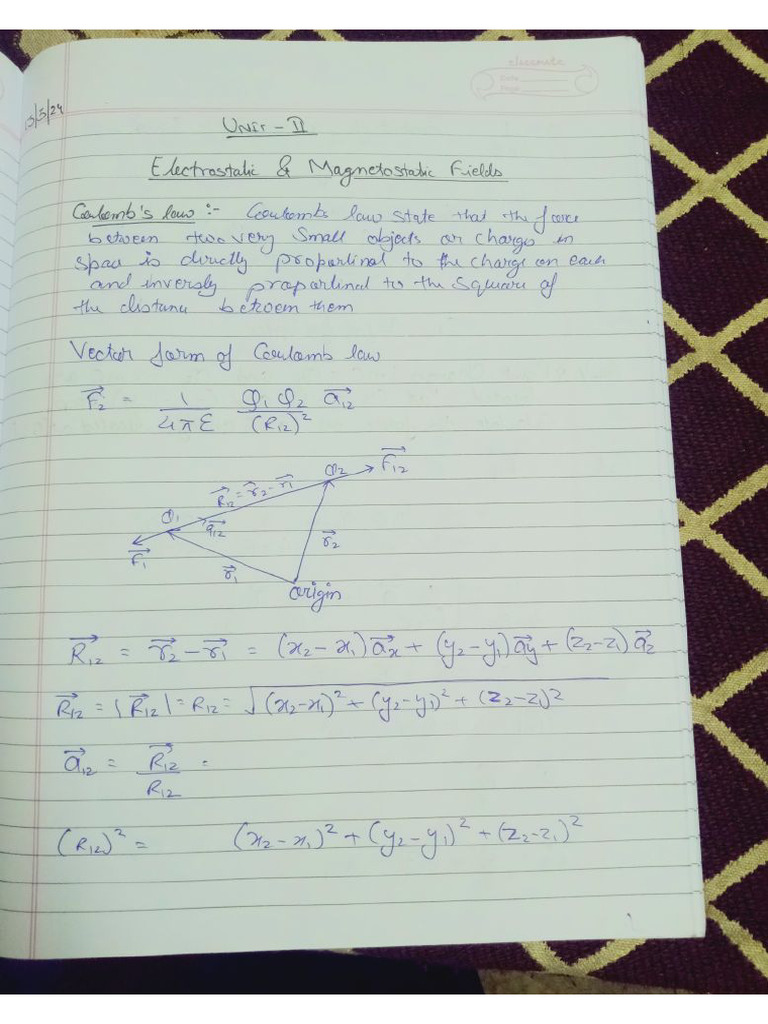 Unit - II
Electrostatic & Magnetostatic Fields
Coulomb's law :- Coulombs law state that the force
between two very Small objects or charge in
space is directly proportinal to the charge on each
and inversly proportinal to the square of
the distance between them
Vector form of Coulomb law
F₂⃗ = 1/4πε Q₁Q₂/(R₁₂)² a₁₂⃗
Q₂ F₁₂⃗
R₁₂⃗ = r₂⃗ - r₁⃗
Q₁ a₁₂⃗
F₁⃗ r₁⃗ r₂⃗
origin
R₁₂⃗ = r₂⃗ - r₁⃗ = (x₂ - x₁)aₓ⃗ + (y₂ - y₁)ay⃗ + (z₂ - z₁)a⃗z
R₁₂⃗ = |R₁₂⃗| = R₁₂ = √(x₂-x₁)² + (y₂-y₁)² + (z₂-z₁)²
a⃗₁₂ = R₁₂⃗/R₁₂ =
(R₁₂)² = (x₂ - x₁)² + (y₂ - y₁)² + (z₂ - z₁)²